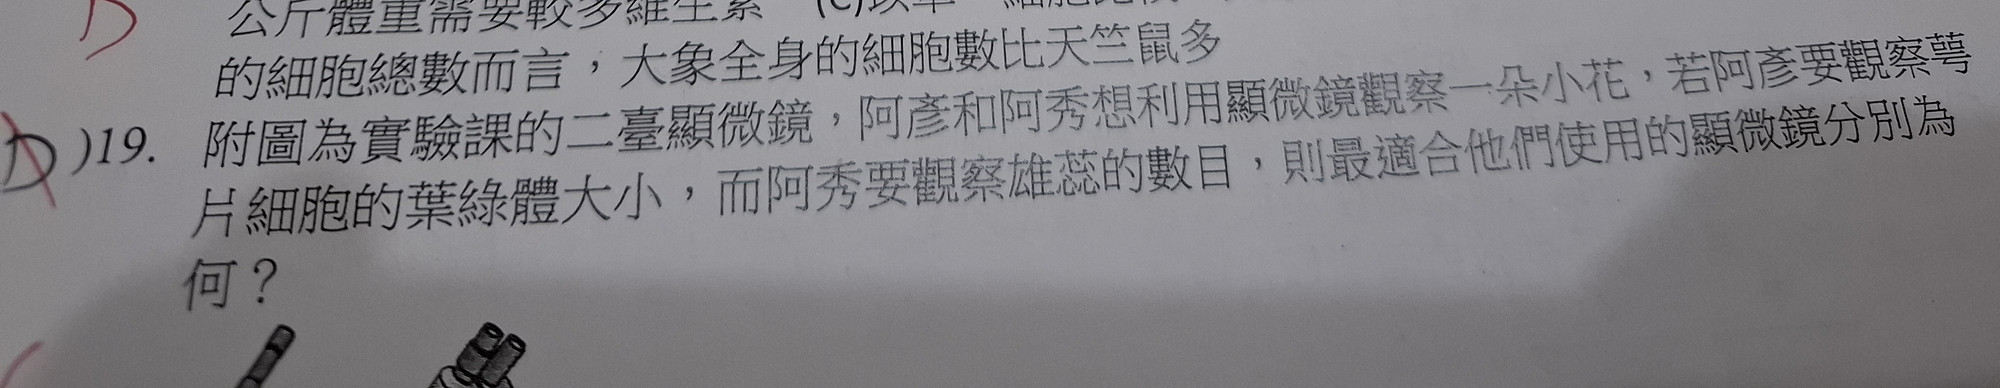 D
公斤體重需要較多維生素 (C)以單一細胞比較
的細胞總數而言，大象全身的細胞數比天竺鼠多
D )19. 附圖為實驗課的二臺顯微鏡，阿彥和阿秀想利用顯微鏡觀察一朵小花，若阿彥要觀察萼
片細胞的葉綠體大小，而阿秀要觀察雄蕊的數目，則最適合他們使用的顯微鏡分別為
何？